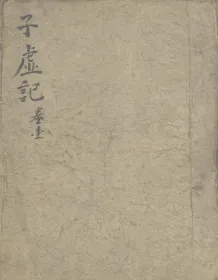 子虛記 卷之